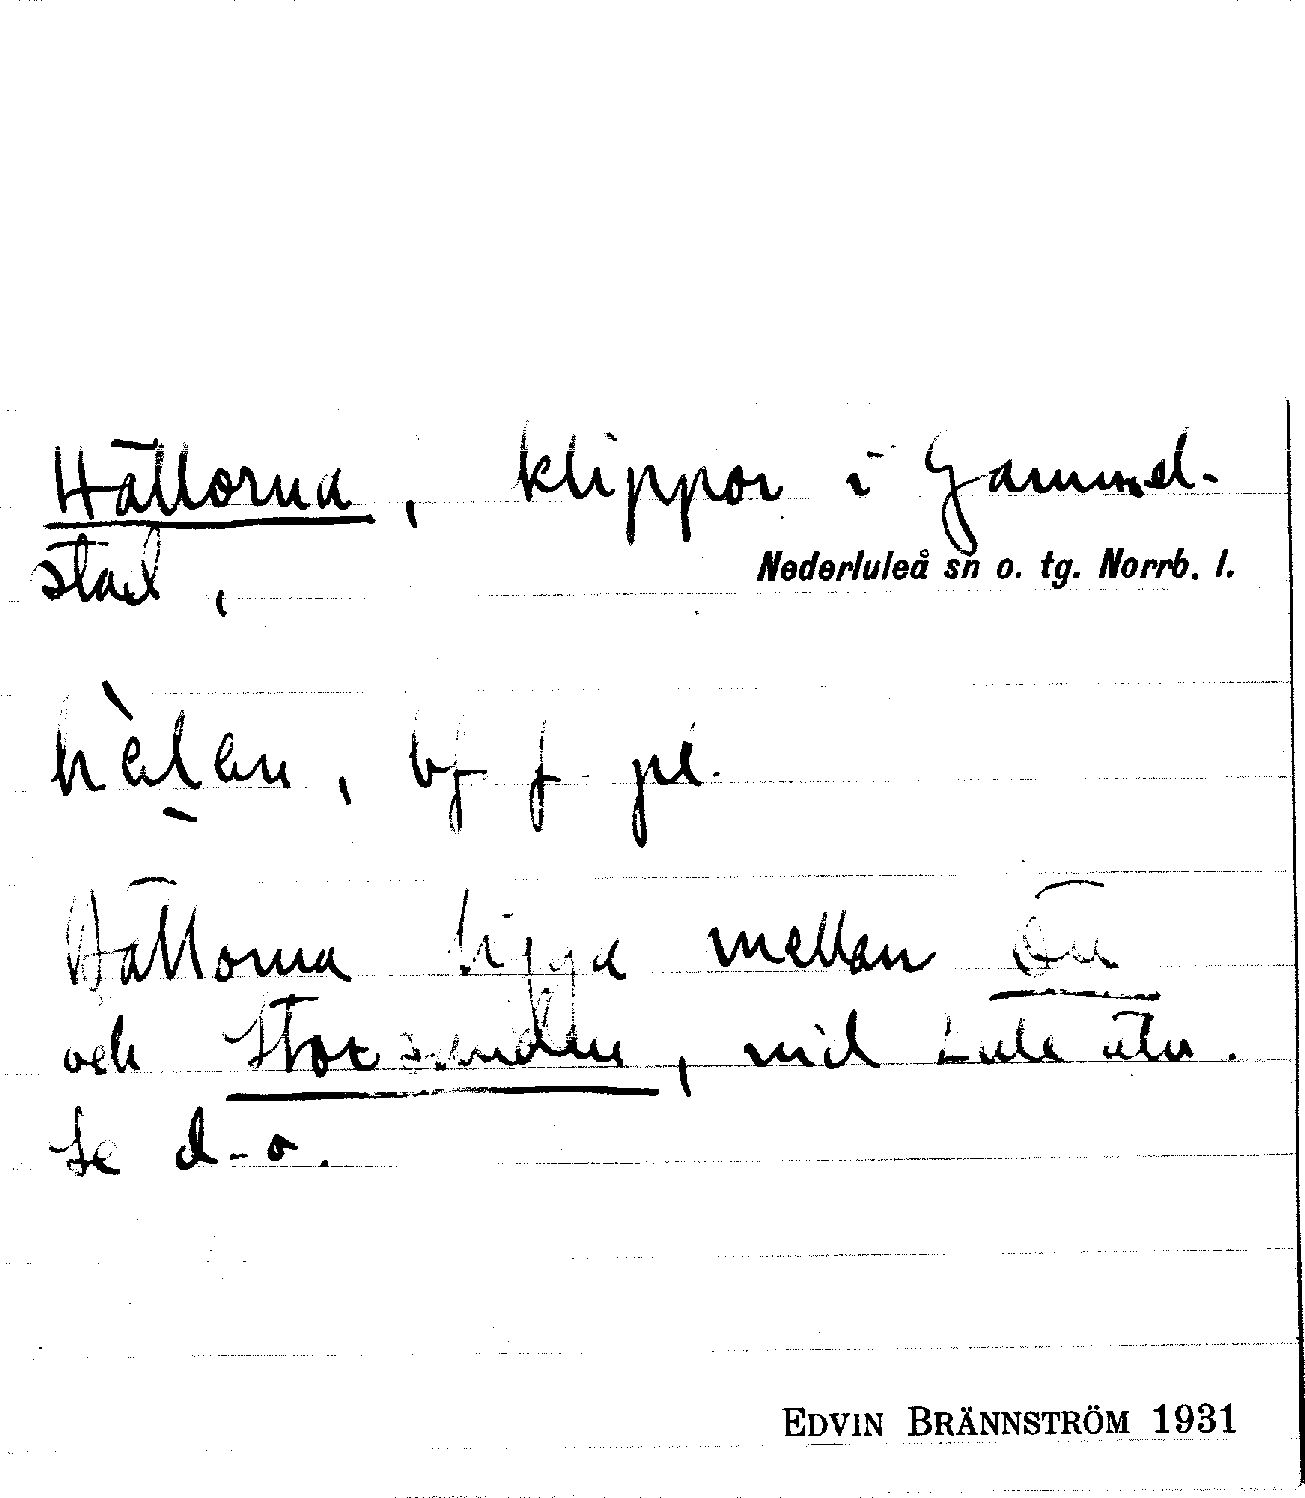 Hällorna, klippor i Gammel-
stad,
Nederluleå sn o. tg. Norrb. l.
bf f pl.
Hällorna ligga mellan Ön
och Storsanden, vid Lule älv.
Se d-o.
EDVIN BRÄNNSTRÖM 1931